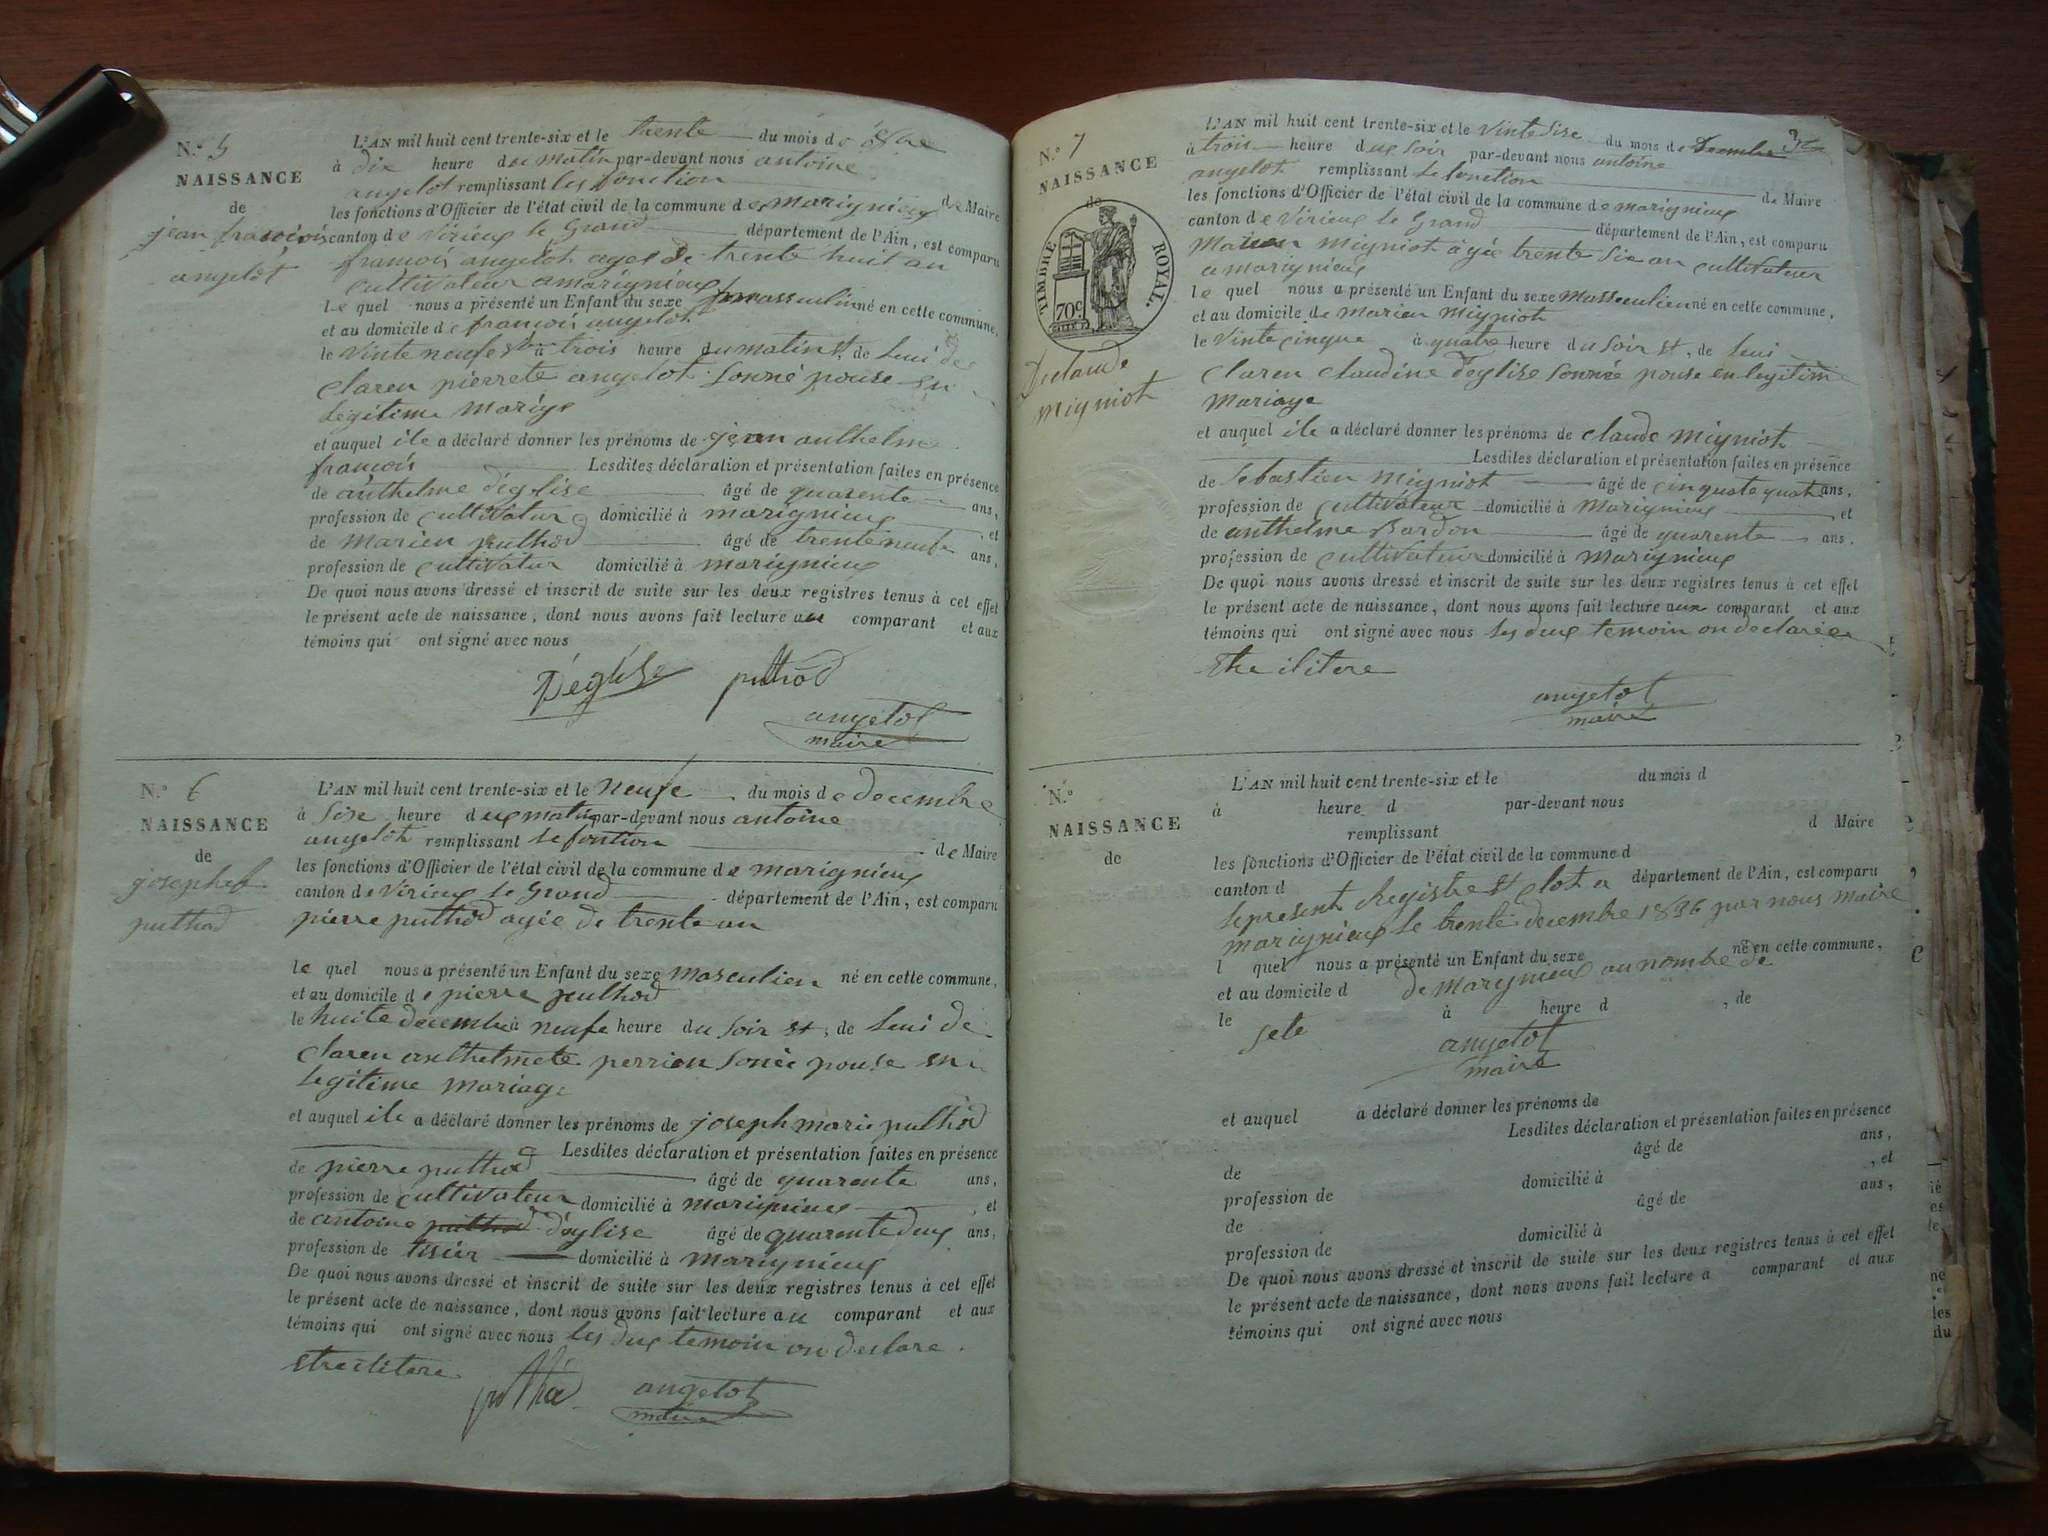 N.º 5
NAISSANCE
de
jean francois
angelot
L'AN mil huit cent trente-six et le trente du mois de 8bre
à dix heure du matin par-devant nous antoine
angelot remplissant les fonction de Maire
les fonctions d'Officier de l'état civil de la commune de marignieu
canton de Virieu le Grand département de l'Ain, est comparu
francois angelot agé de trente huit an
cultivateur a marignieu
le quel nous a présenté un Enfant du sexe massculin né en cette commune,
et au domicile de francois angelot
le vinte neufe à trois heure du matin st, de lui de
claren pierrete angelot sonné pouse en
legitime mariage
et auquel ile a déclaré donner les prénoms de jean anthelme
francois Lesdites déclaration et présentation faites en présence
de anthelme déglise âgé de quarente ans,
profession de cultivatur domicilié à marignieu et
de marien puthod âgé de trente neufe ans,
profession de cultivatur domicilié à marignieu
De quoi nous avons dressé et inscrit de suite sur les deux registres tenus à cet effet
le présent acte de naissance, dont nous avons fait lecture au comparant et aux
témoins qui ont signé avec nous
Déglise puthod
angelot
maire
N.º 6
NAISSANCE
de
joseph
puthod
L'AN mil huit cent trente-six et le neufe du mois de decembre
à sixe heure du matin par-devant nous antoine
angelot remplissant le fontion de Maire
les fonctions d'Officier de l'état civil de la commune de marignieu
canton de Virieu le Grand département de l'Ain, est comparu
pierre puthod agée de trente an
le quel nous a présenté un Enfant du sexe masculien né en cette commune,
et au domicile de pierre puthod
le huite decembre à neufe heure du soir st, de lui de
claren anthelmete perrion sonée pouse en
legitime mariage
et auquel ile a déclaré donner les prénoms de joseph marie puthod
Lesdites déclaration et présentation faites en présence
de pierre puthod âgé de quarente ans,
profession de cultivateur domicilié à marignieu, et
de antoine puthod déglise âgé de quarente deux ans,
profession de tisier domicilié à marignieu
De quoi nous avons dressé et inscrit de suite sur les deux registres tenus à cet effet
le présent acte de naissance, dont nous avons fait lecture au comparant et aux
témoins qui ont signé avec nous les deux temoin on declare
etre ilitere
puthod angelot
maire
N.º 7
NAISSANCE
de
TIMBRE ROYAL.
70c
De claude
migniot
L'AN mil huit cent trente-six et le vinte sixe du mois de Decembre
à trois heure du soir par-devant nous antoine
angelot remplissant le fonction de Maire
les fonctions d'Officier de l'état civil de la commune de marignieu
canton de Virieu le Grand département de l'Ain, est comparu
Marien migniot agée trente six an cultivateur
a marignieu
le quel nous a présenté un Enfant du sexe massculien né en cette commune,
et au domicile de marien migniot
le vinte cinque à quatre heure du soir st, de lui
claren claudine déglise sonnée pouse en legitime
mariage
et auquel ile a déclaré donner les prénoms de claude migniot
Lesdites déclaration et présentation faites en présence
de sebastien migniot âgé de cinquate quatre ans,
profession de cultivateur domicilié à marignieu, et
de anthelme Bardon âgé de quarente ans,
profession de cultivateur domicilié à marignieu
De quoi nous avons dressé et inscrit de suite sur les deux registres tenus à cet effet
le présent acte de naissance, dont nous avons fait lecture aux comparant et aux
témoins qui ont signé avec nous les deux temoin on declarée
etre ilitere
angelot
maire
N.º
NAISSANCE
de
L'AN mil huit cent trente-six et le du mois d
à heure d par-devant nous
remplissant d Maire
les fonctions d'Officier de l'état civil de la commune d
canton d département de l'Ain, est comparu
le present Registre st clot a
marignieu le trente decembre 1836 par nous maire
l quel nous a présenté un Enfant du sexe né en cette commune,
et au domicile d de marignieu au nombre de
le à heure d , de
sete
angelot
maire
et auquel a déclaré donner les prénoms de
Lesdites déclaration et présentation faites en présence
de âgé de ans,
profession de domicilié à , et
de âgé de ans,
profession de domicilié à
De quoi nous avons dressé et inscrit de suite sur les deux registres tenus à cet effet
le présent acte de naissance, dont nous avons fait lecture a comparant et aux
témoins qui ont signé avec nous